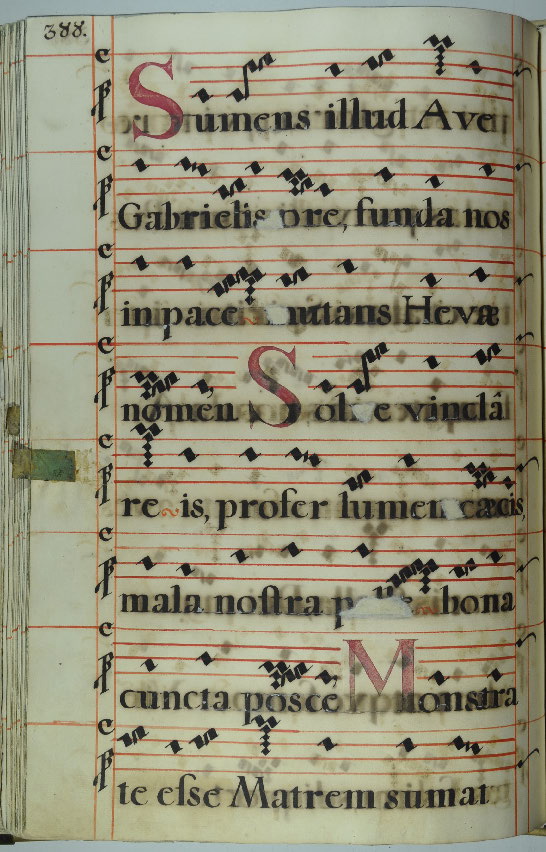 388.
Sumens illud Ave
Gabrielis ore, funda nos
in pace mutans Hevæ
nomen Solve vinclâ
re is, profer lumen cæcis,
mala noſtra pelle bona
cuncta posce Monstra
te eſse Matrem sumat